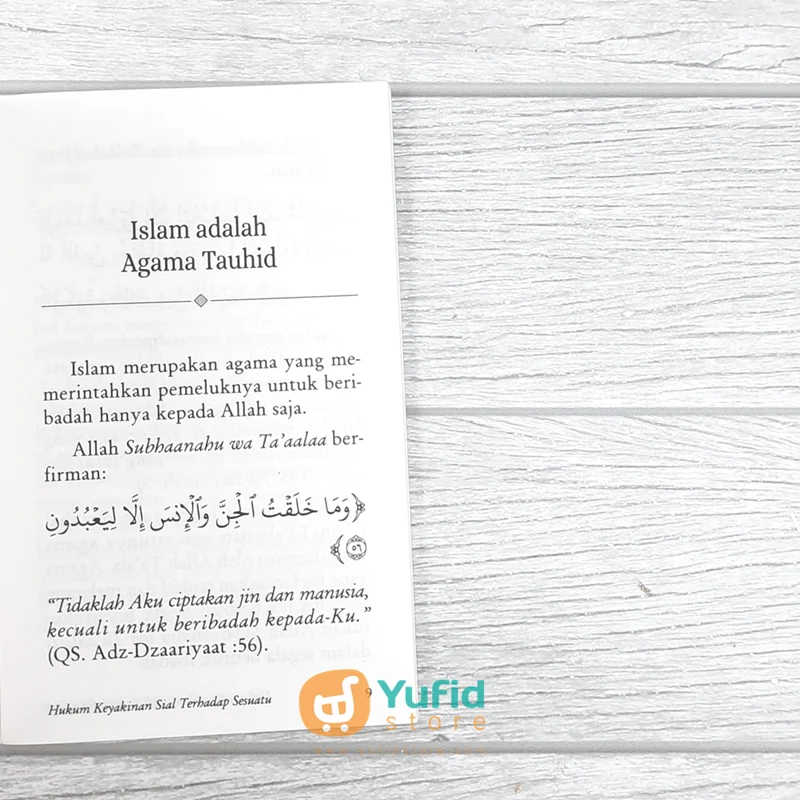 Islam adalah
Agama Tauhid
Islam merupakan agama yang me-
merintahkan pemeluknya untuk beri-
badah hanya kepada Allah saja.
Allah Subhaanahu wa Ta’aalaa ber-
firman:
﴿وَمَا خَلَقْتُ ٱلْجِنَّ وَٱلْإِنسَ إِلَّا لِيَعْبُدُونِ
٥٦﴾
“Tidaklah Aku ciptakan jin dan manusia,
kecuali untuk beribadah kepada-Ku.”
(QS. Adz-Dzaariyaat :56).
Hukum Keyakinan Sial Terhadap Sesuatu 9
Yufid
store